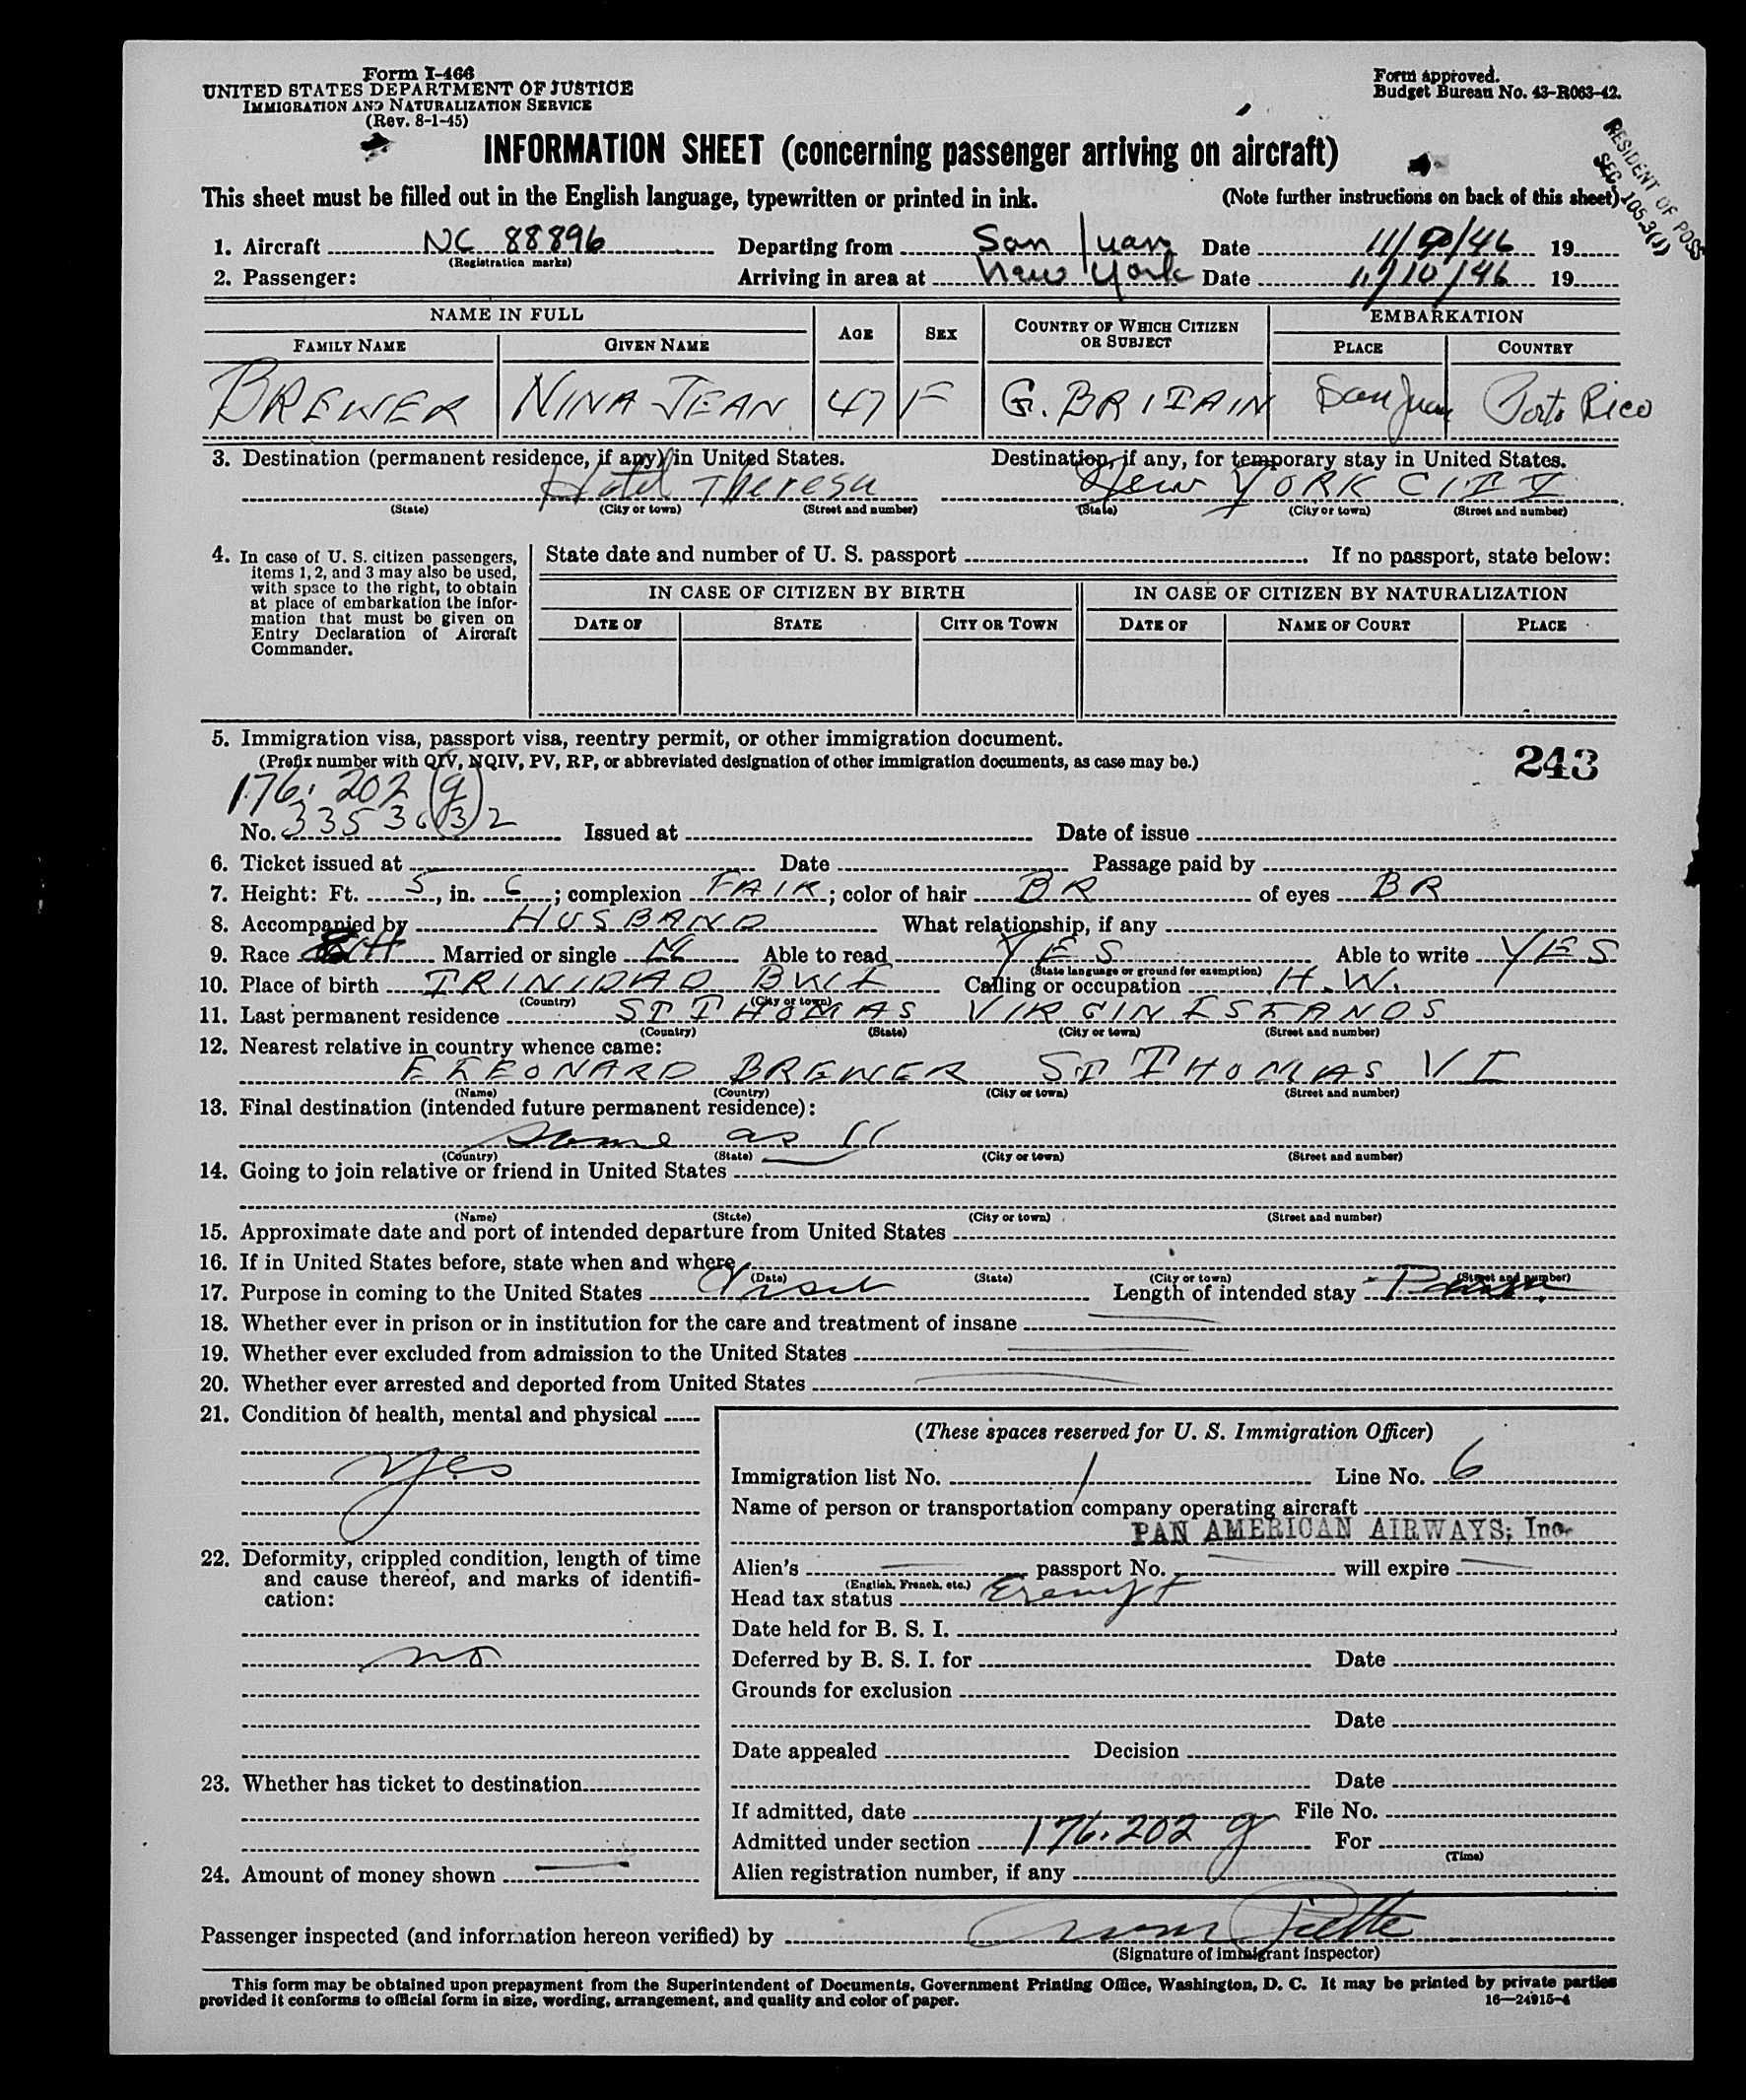 Form I-466
UNITED STATES DEPARTMENT OF JUSTICE
IMMIGRATION AND NATURALIZATION SERVICE
(Rev. 8-1-45)
Form approved.
Budget Bureau No. 43-R063-42.
INFORMATION SHEET (concerning passenger arriving on aircraft)
RESIDENT OF POSS
SEC 105.3(1)
This sheet must be filled out in the English language, typewritten or printed in ink. (Note further instructions on back of this sheet)
1. Aircraft NC 88896 Departing from San Juan Date 11/9/46 19
(Registration marks)
2. Passenger: Arriving in area at New York Date 11/10/46 19
NAME IN FULL AGE SEX COUNTRY OF WHICH CITIZEN OR SUBJECT EMBARKATION
FAMILY NAME GIVEN NAME PLACE COUNTRY
BREWER NINA JEAN 47 F G. BRITAIN San Juan Porto Rico
3. Destination (permanent residence, if any) in United States. Destination, if any, for temporary stay in United States.
Hotel Theresa New YORK CITY
(State) (City or town) (Street and number) (State) (City or town) (Street and number)
4. In case of U. S. citizen passengers, items 1, 2, and 3 may also be used, with space to the right, to obtain at place of embarkation the information that must be given on Entry Declaration of Aircraft Commander.
State date and number of U. S. passport If no passport, state below:
IN CASE OF CITIZEN BY BIRTH IN CASE OF CITIZEN BY NATURALIZATION
DATE OF STATE CITY OR TOWN DATE OF NAME OF COURT PLACE
5. Immigration visa, passport visa, reentry permit, or other immigration document.
(Prefix number with QIV, NQIV, PV, RP, or abbreviated designation of other immigration documents, as case may be.)
243
176.202 (g)
No. 3353632 Issued at Date of issue
6. Ticket issued at Date Passage paid by
7. Height: Ft. 5, in. 6; complexion FAIR; color of hair BR of eyes BR
8. Accompanied by HUSBAND What relationship, if any
9. Race Married or single M Able to read YES Able to write YES
(State language or ground for exemption)
10. Place of birth TRINIDAD BWI Calling or occupation H.W.
(Country) (City or town)
11. Last permanent residence ST THOMAS VIRGIN ISLANDS
(Country) (State) (City or town) (Street and number)
12. Nearest relative in country whence came:
LEONARD BREWER ST THOMAS VI
(Name) (Country) (City or town) (Street and number)
13. Final destination (intended future permanent residence):
Same as 11
(Country) (State) (City or town) (Street and number)
14. Going to join relative or friend in United States
(Name) (State) (City or town) (Street and number)
15. Approximate date and port of intended departure from United States
16. If in United States before, state when and where
(Date) (State) (City or town) (Street and number)
17. Purpose in coming to the United States Visit Length of intended stay
18. Whether ever in prison or in institution for the care and treatment of insane
19. Whether ever excluded from admission to the United States
20. Whether ever arrested and deported from United States
21. Condition of health, mental and physical
yes
22. Deformity, crippled condition, length of time and cause thereof, and marks of identification:
no
23. Whether has ticket to destination
24. Amount of money shown
(These spaces reserved for U. S. Immigration Officer)
Immigration list No. 1 Line No. 6
Name of person or transportation company operating aircraft
PAN AMERICAN AIRWAYS, Inc.
Alien's passport No. will expire
(English, French, etc.)
Head tax status Exempt
Date held for B. S. I.
Deferred by B. S. I. for Date
Grounds for exclusion
Date
Date appealed Decision
Date
If admitted, date File No.
Admitted under section 176.202 g For
(Time)
Alien registration number, if any
Passenger inspected (and information hereon verified) by
(Signature of immigrant inspector)
This form may be obtained upon prepayment from the Superintendent of Documents, Government Printing Office, Washington, D. C. It may be printed by private parties
provided it conforms to official form in size, wording, arrangement, and quality and color of paper. 16—24915-4